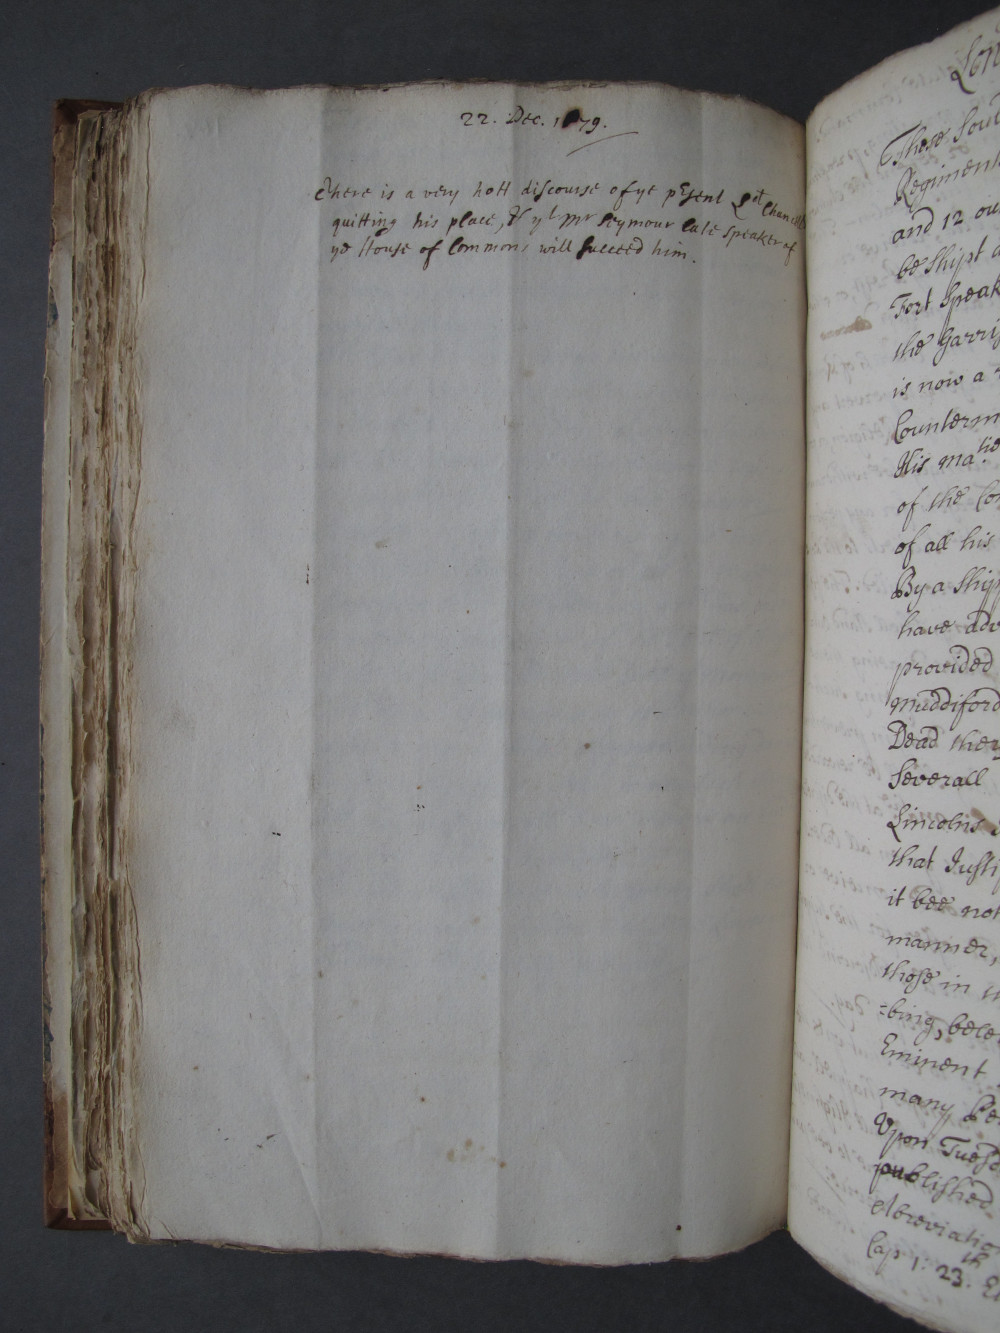 22. Dec. 1679.
There is a very hott discourse of ye prsent Ld Chancellr
quitting his place, & yt Mr Seymour late Speaker of
ye House of Commons will succeed him.
These
Regiment
and 12 ou
be Shipt
Fort Speak
the Garris
is now a
Counterm
His Matie
of the Co
of all his
By a Ship
have adv
provided
Muddiford
Dead
Severall
Lincolns
that Justi
it bee not
manner,
those in th
:bing,
Eminent
many Pe
Upon Tuesd
published
Abreviation
Cap. 1. 23.th